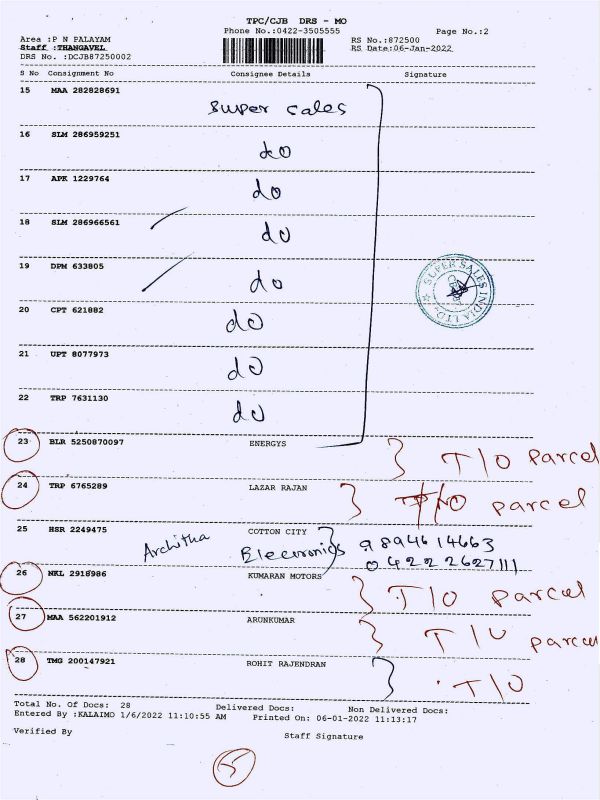 TPC/CJB DRS - MO
Phone No.:0422-3505555
Page No.:2
Area :P N PALAYAM
RS No.:872500
Staff :THANGAVEL
RS Date:06-Jan-2022
DRS No. :DCJB87250002
S No Consignment No Consignee Details Signature
15 MAA 282828691
Super Sales
16 SLM 286959251
do
17 APK 1229764
do
18 SLM 286966561
do
19 DPM 633805
do
SUPER SALES INDIA LTD.
20 CPT 621882
do
21 UPT 8077973
do
22 TRP 7631130
do
23 BLR 5250870097 ENERGYS
T/O Parcel
24 TRP 6765289 LAZAR RAJAN
T/O parcel
25 HSR 2249475 COTTON CITY
Architha Electronics 9894614663
04222627111
26 NKL 2918986 KUMARAN MOTORS
T/O Parcel
27 MAA 562201912 ARUNKUMAR
T/O parcel
28 TMG 200147921 ROHIT RAJENDRAN
T/O
Total No. Of Docs: 28 Delivered Docs: Non Delivered Docs:
Entered By :KALAIMO 1/6/2022 11:10:55 AM Printed On: 06-01-2022 11:13:17
Verified By Staff Signature
5